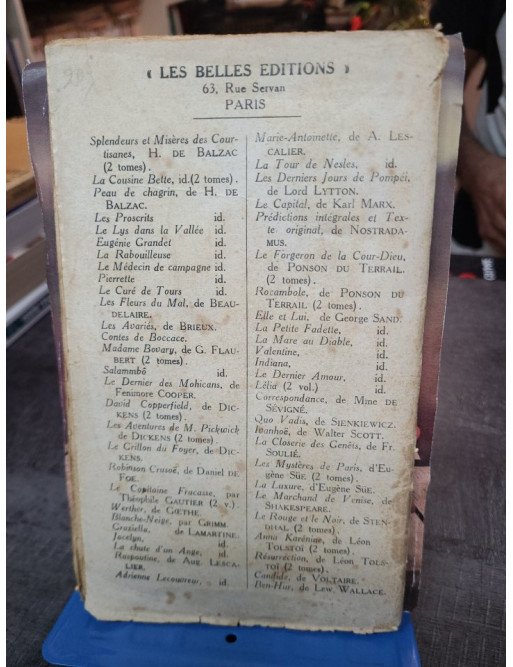 « LES BELLES EDITIONS »
63, Rue Servan
PARIS
Splendeurs et Misères des Cour-
tisanes, H. DE BALZAC
(2 tomes).
La Cousine Bette, id.(2 tomes).
Peau de chagrin, de H. DE
BALZAC.
Les Proscrits id.
Le Lys dans la Vallée id.
Eugénie Grandet id.
La Rabouilleuse id.
Le Médecin de campagne id.
Pierrette id.
Le Curé de Tours id.
Les Fleurs du Mal, de BEAU-
DELAIRE.
Les Avariés, de BRIEUX.
Contes de Boccace.
Madame Bovary, de G. FLAU-
BERT (2 tomes).
Salammbô id.
Le Dernier des Mohicans, de
Fenimore COOPER.
David Copperfield, de DIC-
KENS (2 tomes).
Les Aventures de M. Pickwick
de DICKENS (2 tomes).
Le Grillon du Foyer, de DIC-
KENS.
Robinson Crusoé, de Daniel DE
FOE.
Le Capitaine Fracasse, par
Théophile GAUTIER (2 v.).
Werther, de GŒTHE.
Blanche-Neige, par GRIMM.
Graziella, de LAMARTINE.
Jocelyn, id.
La chute d'un Ange, id.
Raspoutine, de Aug. LESCA-
LIER.
Adrienne Lecouvreur, id.
Marie-Antoinette, de A. LES-
CALIER.
La Tour de Nesles, id.
Les Derniers Jours de Pompéi,
de Lord LYTTON.
Le Capital, de Karl MARX.
Prédictions intégrales et Tex-
te original, de NOSTRADA-
MUS.
Le Forgeron de la Cour-Dieu,
de PONSON DU TERRAIL.
(2 tomes).
Rocambole, de PONSON DU
TERRAIL (2 tomes).
Elle et Lui, de George SAND.
La Petite Fadette, id.
La Mare au Diable, id.
Valentine, id.
Indiana, id.
Le Dernier Amour, id.
Lélia (2 vol.) id.
Correspondance, de Mme DE
SÉVIGNÉ.
Quo Vadis, de SIENKIEWICZ.
Ivanhoé, de Walter SCOTT.
La Closerie des Genêts, de Fr.
SOULIÉ.
Les Mystères de Paris, d'Eu-
gène SÜE (2 tomes).
La Luxure, d'Eugène SÜE.
Le Marchand de Venise, de
SHAKESPEARE.
Le Rouge et le Noir, de STEN-
DHAL (2 tomes).
Anna Karénine, de Léon
TOLSTOÏ (2 tomes).
Résurrection, de Léon TOLS-
TOÏ (2 tomes).
Candide, de VOLTAIRE.
Ben-Hur, de Lew. WALLACE.